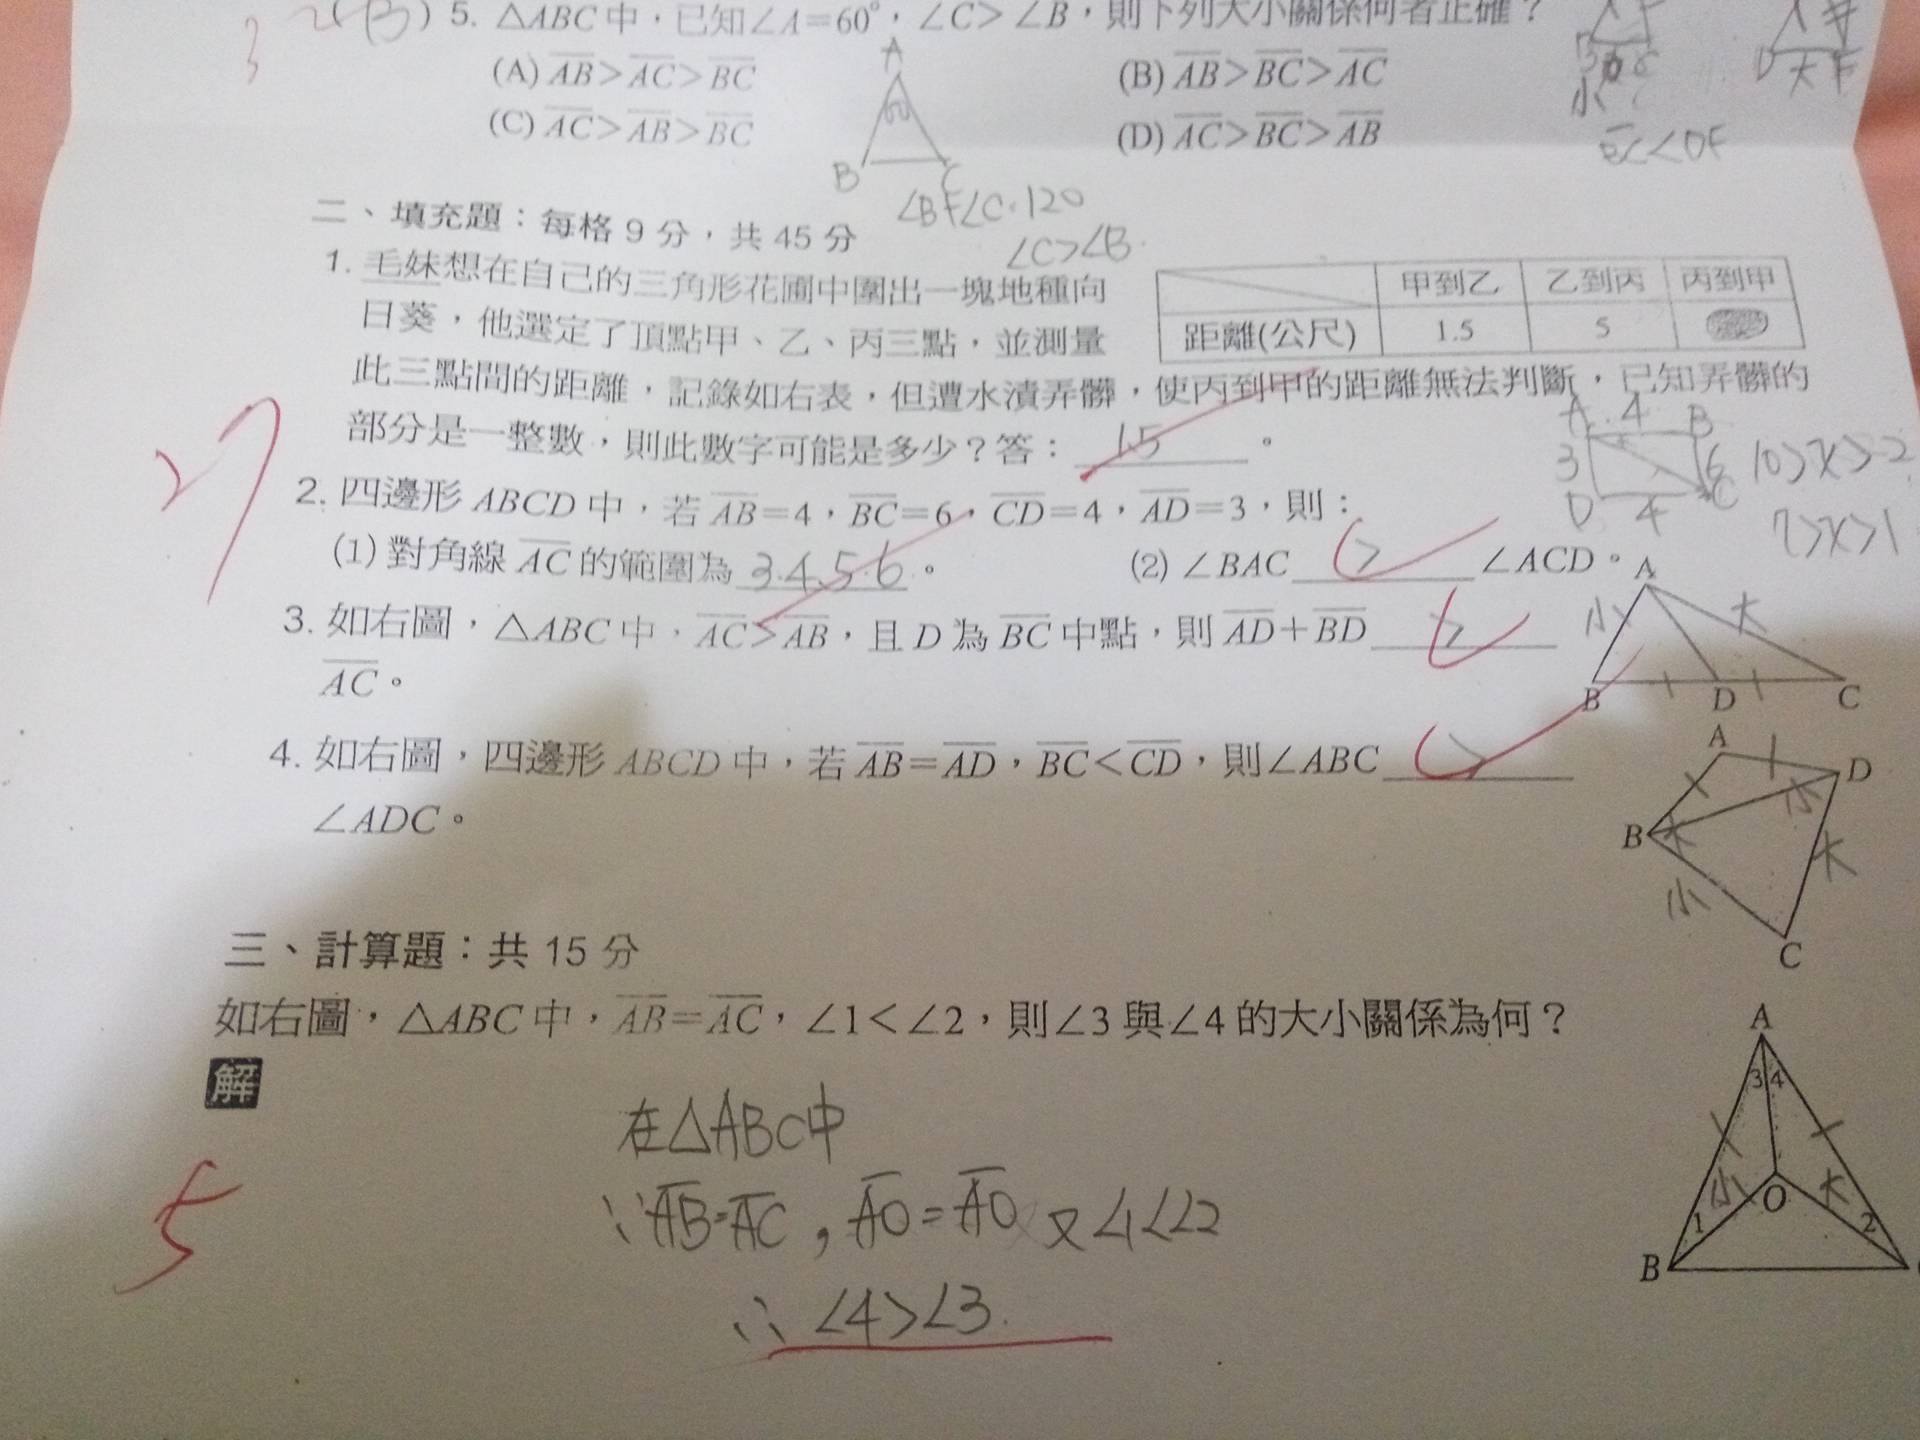 3 2(B) 5. △ABC中,已知∠A=60°,∠C>∠B,則下列大小關係何者正確?
(A) AB>AC>BC (B) AB>BC>AC
(C) AC>AB>BC (D) AC>BC>AB
A
60
B C
小
大
EC<DF
∠B+∠C=120
∠C>∠B
二、填充題:每格9分,共45分
27
1. 毛妹想在自己的三角形花圃中圍出一塊地種向
日葵,他選定了頂點甲、乙、丙三點,並測量
此三點間的距離,記錄如右表,但遭水漬弄髒,使丙到甲的距離無法判斷,已知弄髒的
部分是一整數,則此數字可能是多少?答: 1.5 。
甲到乙 乙到丙 丙到甲
距離(公尺) 1.5 5
2. 四邊形ABCD中,若AB=4,BC=6,CD=4,AD=3,則:
(1) 對角線AC的範圍為 3.4.5.6 。 (2) ∠BAC > ∠ACD。
A 4 B
3 6
D 4 C
10>x>2
7>x>1
3. 如右圖,△ABC中,AC>AB,且D為BC中點,則AD+BD >
AC。
A
小 大
B D C
4. 如右圖,四邊形ABCD中,若AB=AD,BC<CD,則∠ABC >
∠ADC。
A
D
小
B 大
大
小
C
三、計算題:共15分
如右圖,△ABC中,AB=AC,∠1<∠2,則∠3與∠4的大小關係為何?
解
5
在△ABC中
∵AB=AC,AO=AO 又∠1<∠2
∴∠4>∠3.
A
3 4
小 大
O
1 2
B